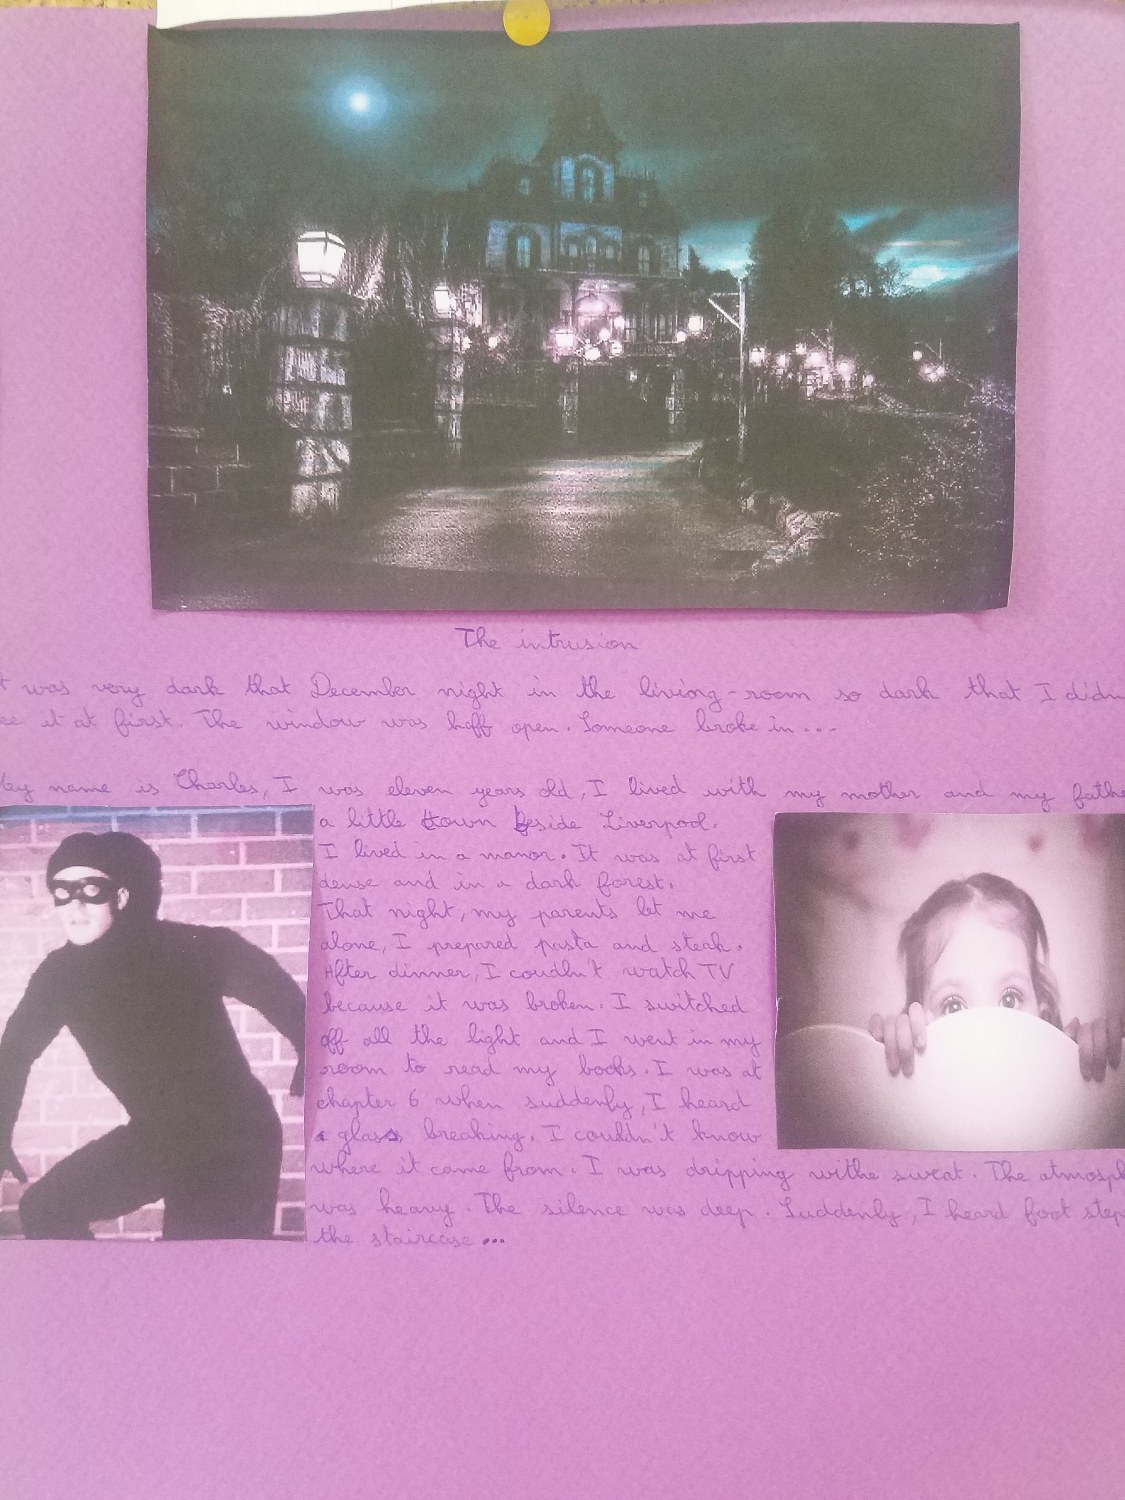 The intrusion
t was very dark that December night in the living-room so dark that I didn
ee it at first. The window was haff open. Someone broke in...
My name is Charles, I was eleven years old, I lived with my mother and my fathe
a little town beside Liverpool.
I lived in a manor. It was at first
dense and in a dark forest.
That night, my parents let me
alone, I prepared pasta and steak.
After dinner, I coudln't watch TV
because it was broken. I switched
off all the light and I went in my
room to read my books. I was at
chapter 6 when suddenly, I heard
a glass breaking. I couldn't know
where it came from. I was dripping withe sweat. The atmosph
was heavy. The silence was deep. Suddenly, I heard foot step
the staircase...